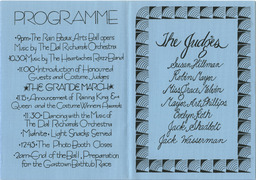 PROGRAMME
•9pm•The Rain Beaux Arts Ball opens
Music by The Dal Richards Orchestra
•10:30 Music by The Heartaches Razz Band
•11:00•Introduction of Honoured
Guests and Costume Judges
★THE GRANDE MARCH★
•11:15•Announcement of Reigning King &
Queen and the Costume Winners Awards
•11:30•Dancing with the Music of
The Dal Richards Orchestra
•Midnite•Light Snacks Served
•12:45•The Photo Booth Closes
•2am•End of the Ball, Preparation
for the Gastown Bathtub Race
The Judges
Susan Hillman
Robin Mayor
Max
Mayor Art Phillips
Evelyn Roth
Jack Shadbolt
Jack Wasserman